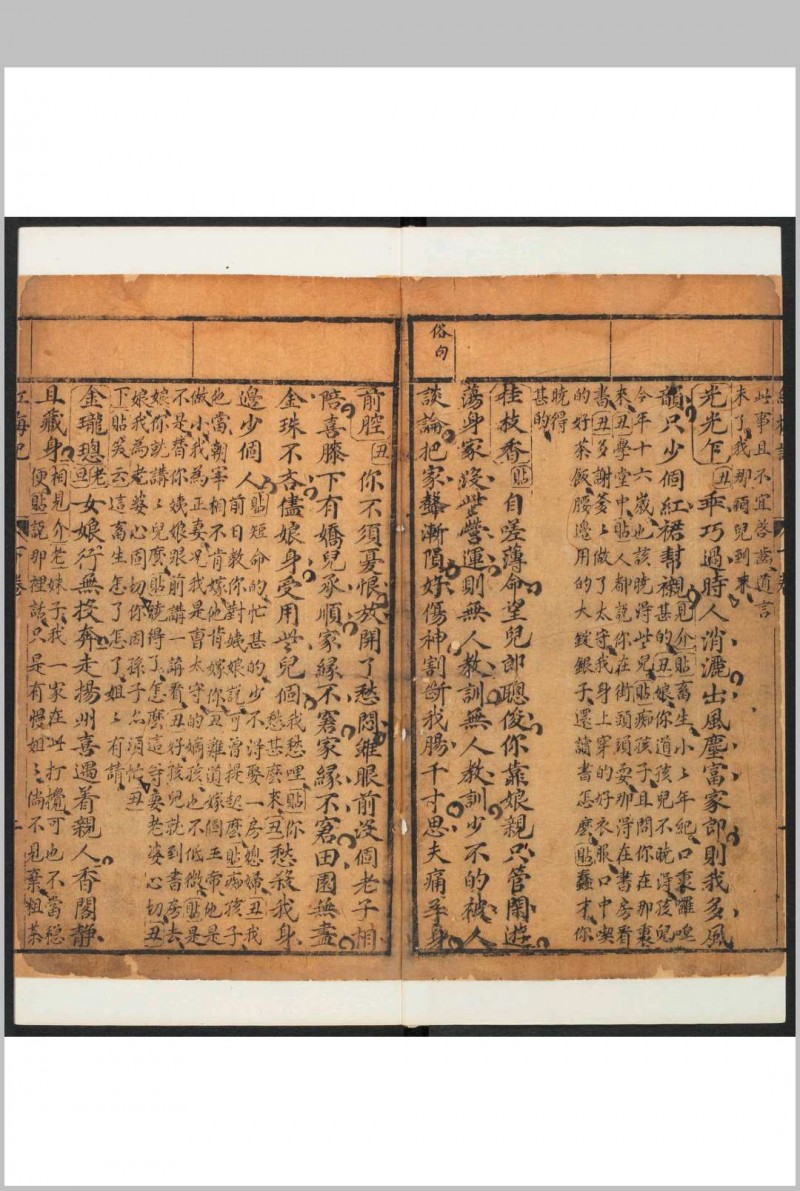 俗句
此事且不宜啓齒道言
來了我那稱兒到來
光光乍丑乖巧過時人消灑出風塵富家郎則我多風
韻只少個紅裙幫襯見介貼畜生小小年紀口裏囉唣
今年十六歲也該曉得些兒貼痴孩子且問你在那裏
來丑學堂中貼人都說你在街頭頭耍那得在書房看
書丑多謝爹上做了太守我身上穿的好衣服口中喫
的好茶飯腰邊用的大錠銀子還讀書怎麽貼蠢才你
曉得
甚的
桂枝香貼自嗟薄命望兒郎聰俊你靠娘親只管閑遊
蕩身家沒些營運則無人教訓無人教訓少不的被人
談論把家聲漸隕好傷神割斷我腸千寸思夫痛殺身
前腔丑你不須憂恨放開了愁悶雖眼前沒個老子相
陪喜膝下有嬌兒承順家緣不窘家緣不窘田園無盡
金珠不吝儘娘身受用些兒個我愁哩貼你愁甚麽來丑愁殺我身
邊少個人貼短命的忙甚的少不得娶一房媳婦丑我
前日教你對姨娘說可曾提起麽貼痴孩子
他當朝宰相不肯嫁你丑難道嫁個王帝他是
做小我為正妻兄我是曹太守的嫡孩也不低微貼是
不是替你姨娘跟前講一講看丑好孩兒就到書房去
娘你就講上兒麽貼曉得了怎麽這等要老婆心切丑
娘我為老婆心固切你固孫子名須忙丑
下貼笑云這畜生怎了怎了姐上有請
金瓏璁老旦女娘行無投奔走揚州喜遇着親人香閣靜
且藏身相見介老妹子我一家在此打攪可也不當穩
便貼說那裡話只是有慢姐上倘不見棄粗茶
紅梅記
下卷